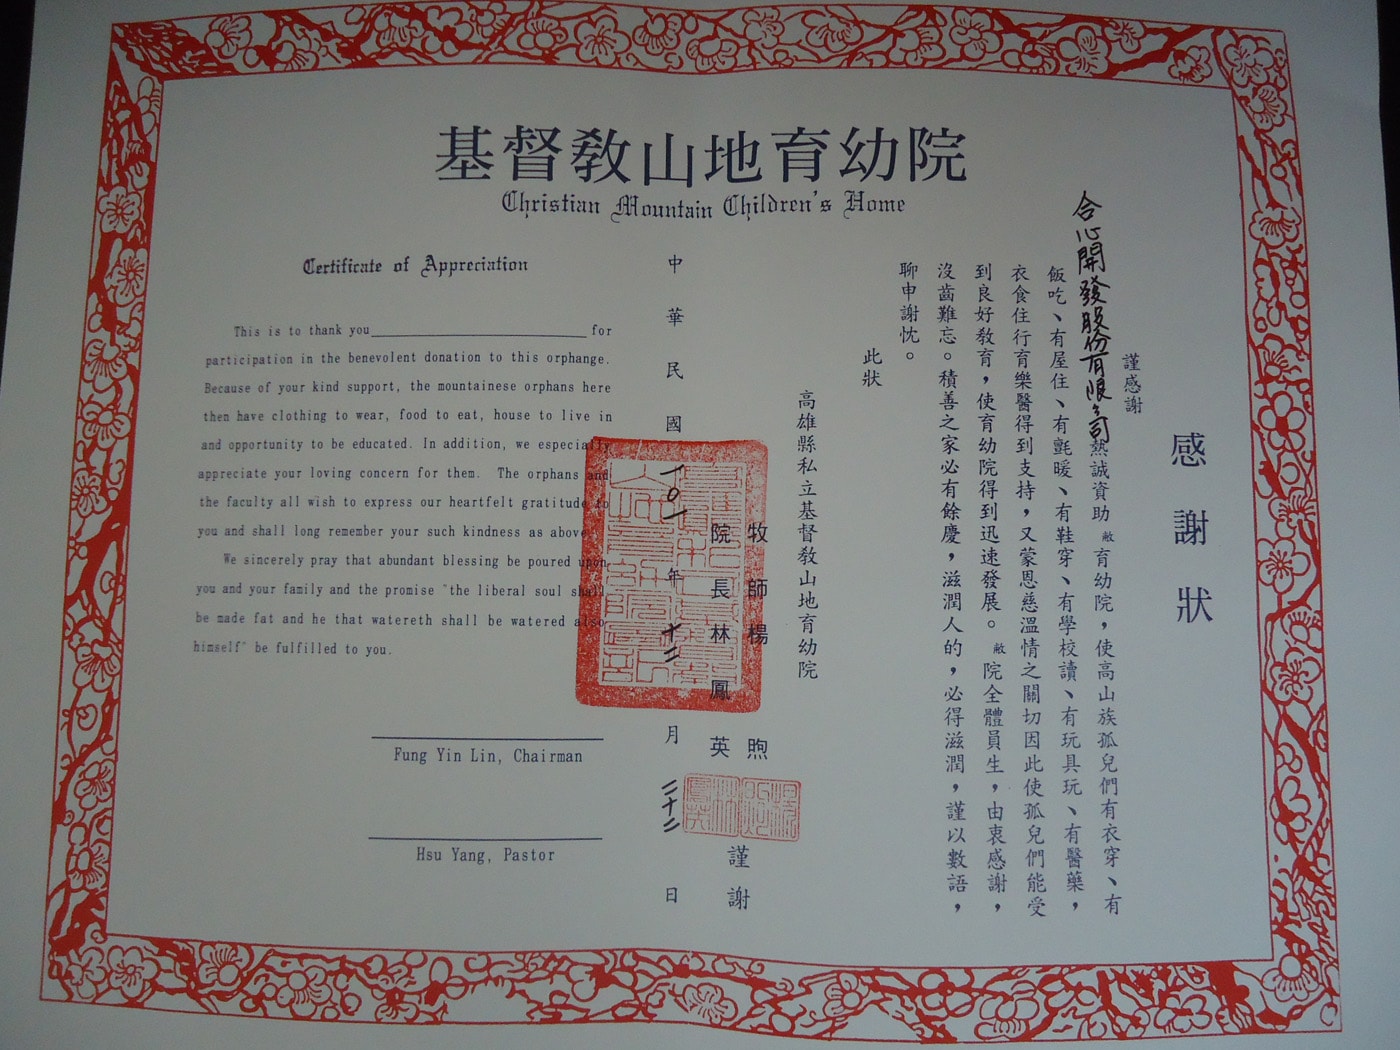 基督教山地育幼院
Christian Mountain Children's Home
感謝狀
謹感謝
合心開發股份有限公司熱誠資助 敝育幼院，使高山族孤兒們有衣穿、有
飯吃、有屋住、有氈暖、有鞋穿、有學校讀、有玩具玩、有醫藥，
衣食住行育樂醫得到支持，又蒙恩慈溫情之關切因此使孤兒們能受
到良好教育，使育幼院得到迅速發展。敝院全體員生，由衷感謝，
沒齒難忘。積善之家必有餘慶，滋潤人的，必得滋潤，謹以數語，
聊申謝忱。
此狀
高雄縣私立基督教山地育幼院
牧師楊 煦
院長林鳳英
謹謝
中華民國一〇一年十二月二十二日
Certificate of Appreciation
This is to thank you for
participation in the benevolent donation to this orphange.
Because of your kind support, the mountainese orphans here
then have clothing to wear, food to eat, house to live in
and opportunity to be educated. In addition, we especially
appreciate your loving concern for them. The orphans and
the faculty all wish to express our heartfelt gratitude to
you and shall long remember your such kindness as above.
We sincerely pray that abundant blessing be poured upon
you and your family and the promise "the liberal soul shall
be made fat and he that watereth shall be watered also
himself" be fulfilled to you.
Fung Yin Lin, Chairman
Hsu Yang, Pastor